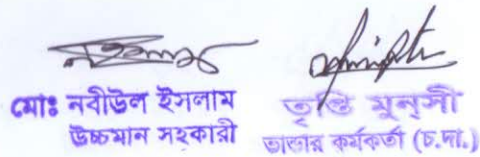 মোঃ নবীউল ইসলাম
উচ্চমান সহকারী
তৃপ্তি মুন্‌সী
ভান্ডার কর্মকর্তা (চ.দা.)